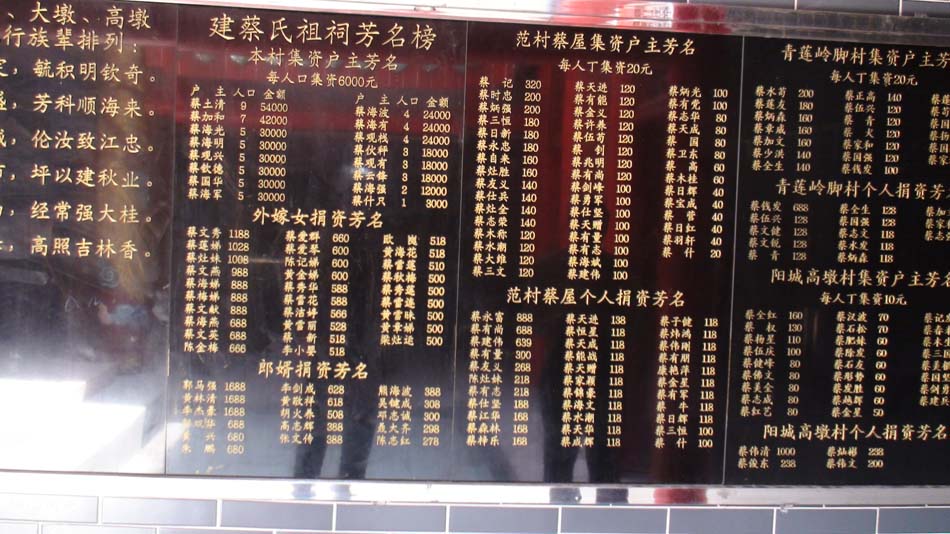 、大墩、高墩
行族辈排列：
，毓积明钦奇。
，芳科顺海来。
，伦汝致江忠。
，坪以建秋业。
，经常强大桂。
，高照吉林香。
建蔡氏祖祠芳名榜
本村集资户主芳名
每人口集资6000元
户 主 人口 金额
蔡土清 9 54000
蔡加和 7 42000
蔡海光 5 30000
蔡海明 5 30000
蔡观兴 5 30000
蔡钦德 5 30000
蔡国华 5 30000
蔡海军 5 30000
户 主 人口 金额
蔡海波 4 24000
蔡海有 4 24000
蔡伙祥 3 18000
蔡观有 3 18000
蔡云锋 3 18000
蔡海强 2 12000
蔡什只 1 3000
外嫁女捐资芳名
蔡文秀 1188
蔡莲娣 1028
蔡灶妹 1008
蔡文燕 988
蔡文娣 888
蔡梅娣 888
蔡文献 888
蔡海燕 688
蔡文英 688
陈金梅 666
蔡爱群 660
蔡爱琴 600
陈记金 600
蔡金娣 600
蔡秀华 588
蔡雪花 588
蔡洁雷 566
蔡雷丽 528
蔡婷 518
李小婴 518
欧 518
海花 518
黄雷莲 510
蔡雪梅 500
蔡秀莲 500
蔡雷妹 500
黄章娣 500
梁灶运 500
郎婿捐资芳名
郭马强 1688
黄林清 1688
李杰豪 1688
华 688
黄 兴 680
朱 鹏 680
李剑成 628
黄敬祥 618
胡火养 508
高志辉 388
张文传 388
熊海波 388
吴健斌 388
邓忠诚 300
聂大齐 298
陈志红 278
范村蔡屋集资户主芳名
每人丁集资20元
蔡 记 320
蔡时忠 200
蔡炳强 200
蔡三恒 180
蔡日新 180
蔡永忠 180
蔡自来 160
蔡灶胜 160
蔡友义 140
蔡仕兴 140
蔡灶金 140
蔡志弥 140
蔡木称 120
蔡水潮 120
蔡大雄 120
蔡三文 120
蔡天进 120
蔡有能 120
蔡金义 120
蔡许养 120
蔡伍苟 120
蔡 剑 120
蔡兆明 120
蔡有尚 120
蔡剑峰 100
蔡勇军 100
蔡仕坚 100
蔡天赠 100
蔡有量 100
蔡有志 100
蔡海斌 100
蔡建伟 100
蔡炳光 100
蔡有党 100
蔡志华 80
蔡天成 80
蔡 国 80
蔡卫东 80
蔡 高 60
蔡木桂 60
蔡日宝 40
蔡三成 40
蔡 菅 40
蔡日红 40
蔡羽轩 40
蔡 什 20
范村蔡屋个人捐资芳名
蔡永富 888
蔡有尚 688
蔡建伟 639
蔡有量 300
蔡友文 288
陈灶妹 218
蔡有志 188
蔡仕坚 168
蔡江华 168
蔡森林 168
蔡梓乐 168
蔡天进 138
蔡恒星 118
蔡天成 118
蔡能战 118
蔡天赠 118
蔡家颖 118
蔡锦豪 118
蔡海文 118
蔡水潮 118
蔡天华 118
蔡成辉 118
蔡子健 118
蔡炜鸿 118
蔡伟彬 118
蔡有朋 118
康艳萍 118
蔡金星 118
蔡有军 118
蔡 牛 118
蔡日辉 118
蔡三恒 100
蔡 什 100
青莲岭脚村集资户主芳
每人丁集资20元
蔡水苟 200
蔡莲友 180
蔡炳森 160
蔡章威 160
蔡加文 160
蔡少洪 140
蔡全生 140
蔡正高 140
蔡伍兴 130
蔡 青 120
蔡 火 120
蔡家和 120
蔡国强 120
蔡钱发 100
青莲岭脚村个人捐资
蔡钱发 688
蔡伍兴 138
蔡文健 128
蔡文锐 128
蔡 青 128
蔡全生 128
蔡国强 128
蔡志文 118
蔡木发 118
蔡炳森 118
阳城高墩村集资户主芳
每人丁集资10元
蔡全红 160
蔡 权 130
蔡杨星 110
蔡伍庆 100
蔡健峰 80
蔡佛文 80
蔡美金 80
蔡志成 80
蔡红艺 80
蔡汉波 70
蔡石松 70
蔡肥妹 60
蔡除发 60
蔡石友 60
蔡彤桥 60
蔡发胜 60
蔡越辉 60
蔡金星 50
阳城高墩村个人捐资芳名
蔡伟清 1000
蔡俊东 238
蔡灿彬 238
蔡伟文 200